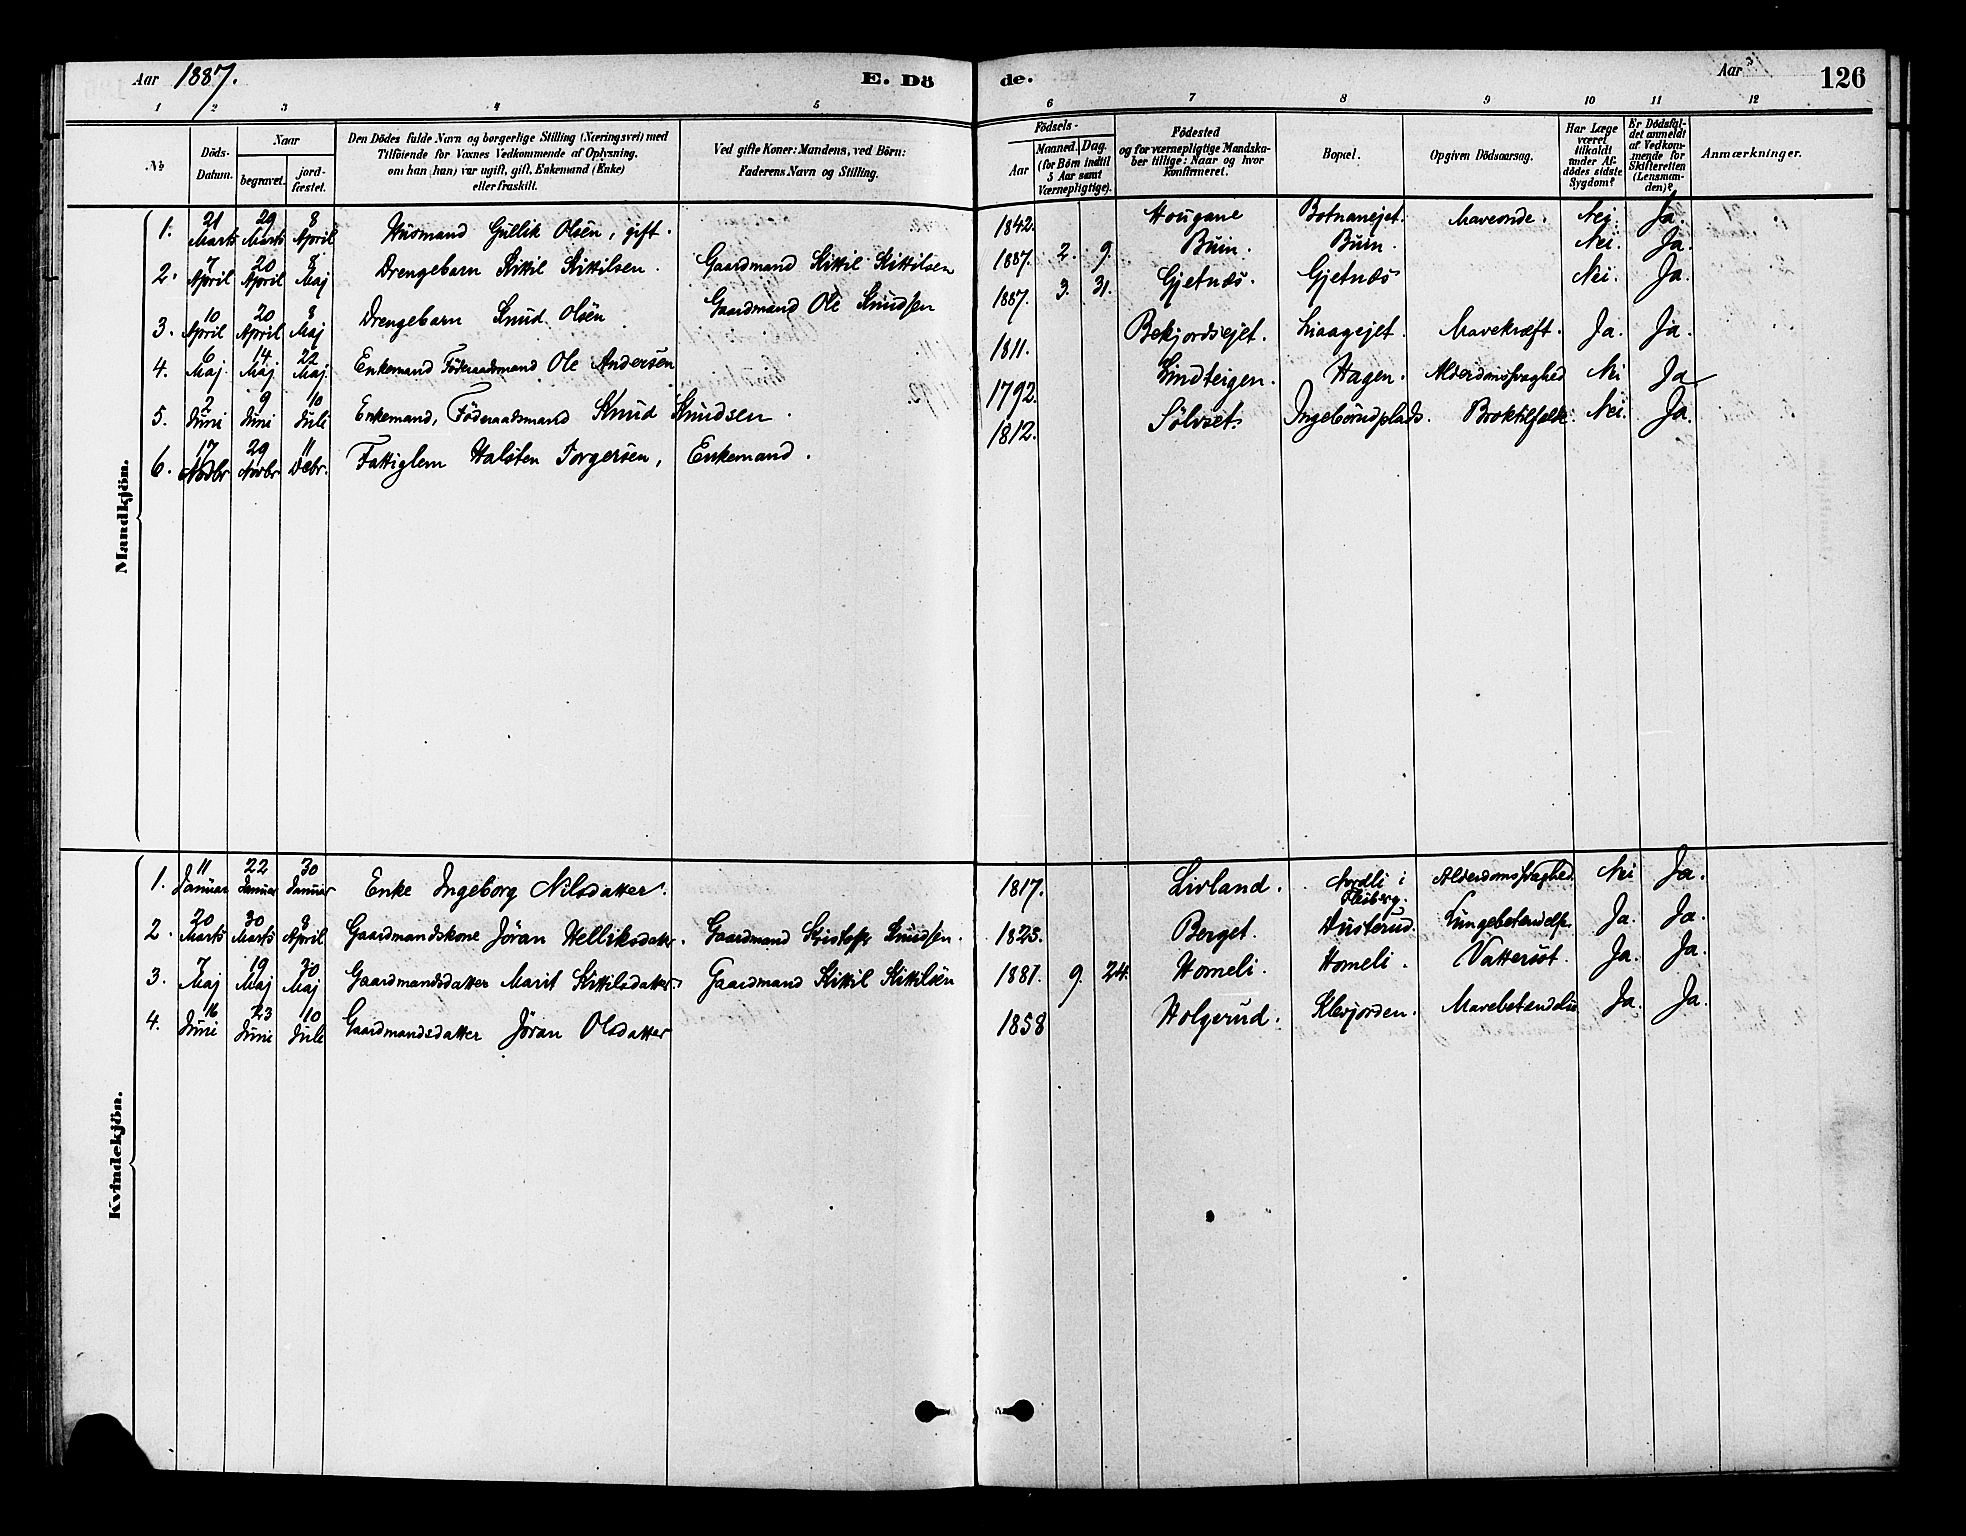 Aar 1887. E. Dö de. Aar 126
1 2 3 4 5 6 7 8 9 10 11 12
No
Döds-Datum.
Naar
begravet.
jord-fæstet.
Den Dödes fulde Navn og borgerlige Stilling (Næringsvei) med
Tilföiende for Voxnes Vedkommende af Oplysning,
om han (hun) var ugift, gift, Enkemand (Enke)
eller fraskilt.
Ved gifte Koner: Mandens, ved Börn:
Faderens Navn og Stilling.
Födsels-
Aar
Maaned. Dag.
(for Börn indtil
5 Aar samt
Værnepligtige).
Födested
og for værnepligtige Mandska-
ber tillige: Naar og hvor
konfirmeret.
Bopæl.
Opgiven Dödsaarsag.
Har Læge
været
tilkaldt
under Af-
dödes sidste
Sygdom?
Er Dödsfal-
det anmeldt
af Vedkom-
mende for
Skifteretten
(Lensman-
den)?
Anmærkninger.
Mandkjön.
1. 21 Marts 29 Marts 8 April Husmand Gullik Olsen, gift. 1842. Hougane Botnanejet. Maveonde. Nei. Ja.
2. 7 April 20 April 8 Maj Drengebarn Kittil Kittilsen. Gaardmand Kittil Kittilsen 1887. 2. 9. Buin. Buin. Nei. Ja.
3. 10 April 20 April 8 Maj Drengebarn Knud Olsen Gaardmand Ole Knudsen 1887. 3. 31. Gjetnæs. Gjetnæs Nei. Ja.
4. 6 Maj 14 Maj 22 Maj. Enkemand Föderaadsmand Ole Andersen 1811. Bekjordsejet. Liaagejet. Mavekræft. Ja. Ja.
5. 2 Juni 9 Juni 10 Juli Enkemand, Föderaadsmand Knud Knudsen. 1792. Lindteigen. Hagen. Alderdomssvaghed Nei Ja
6. 17 Novbr 29 Novbr 11 Decbr. Fattiglem Halsten Torgersen, Enkemand. 1812. Sölvset. Ingebrundplads. Broktilfælde. Nei. Ja.
Kvindekjön.
1. 11 Januar 22 Januar 30 Januar Enke Ingeborg Nilsdatter. 1817. Livland. Nordli i Flesberg. Alderdomssvaghed Nei Ja.
2. 20 Marts 30 Marts 8 April Gaardmandskone Jöran Helliksdatter. Gaardmand Kristoffer Knudsen. 1825. Berget. Husterud. Lungebetendelse. Ja. Ja.
3. 7 Maj 19 Maj 30 Maj Gaardmandsdatter Marit Kittilsdatter. Gaardmand Kittil Kittilsen 1881. 9. 24. Homeli. Homeli. Vattersot. Ja. Ja.
4. 16 Juni 23 Juni 10 Juli Gaardmandsdatter Jöran Olsdatter 1858 Holgerud. Klevjorden. Mavebetendelse Ja. Ja.